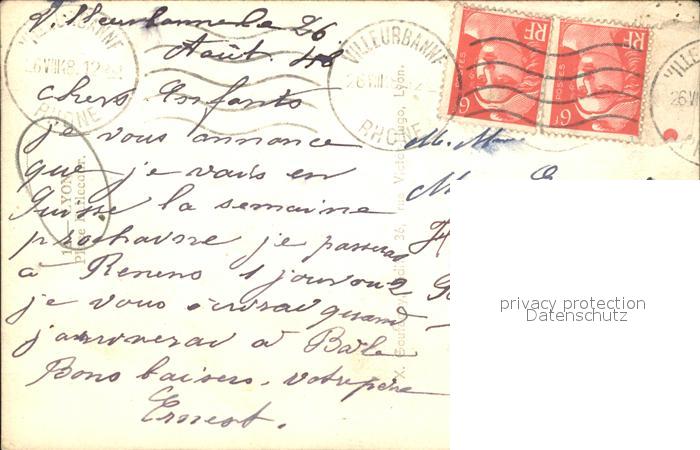 Villeurbanne le 26
Août 48
chers Enfants
je vous annonce
que je vais en
Suisse la semaine
prochaine je passerai
à Renens 1 jour ou 2
je vous écrirai quand
j'arriverai à Bâle
Bons baisers. votre père
Ernest.
M. Mme
VILLEURBANNE
26 VIII 48. 12
RHONE
VILLEURBANNE
RHONE
RF
POSTES
6F
RF
POSTES
6F
LYON
rue Victor Hugo, Lyon
privacy protection
Datenschutz